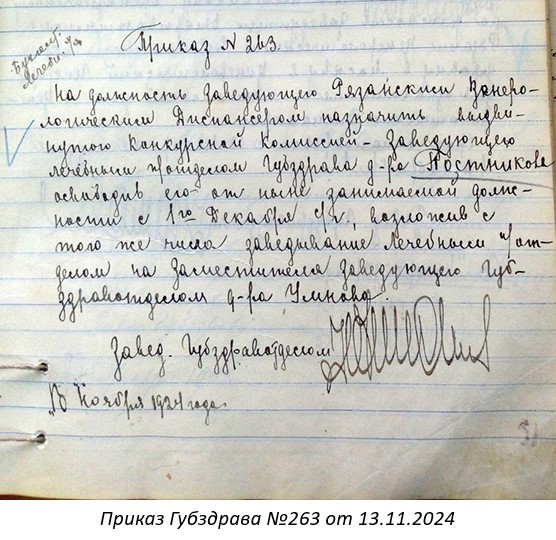 Приказ N 263.
Бухалт.
На должность Заведующего Рязанским Венеро-
логическим Диспансером назначить выдви-
нутого Конкурсной Комиссией - Заведующего
лечебным п/отделом Губздрава д-ра Постникова
освободив его от ныне занимаемой долж-
ности с 1го Декабря с/г., возложив с
того же числа заведывание Лечебным п/от-
делом на Заместителя Заведующего Губ-
здравотделом д-ра Умнова.
Завед. Губздравотделом
Ноября 1924 года.
Приказ Губздрава №263 от 13.11.2024